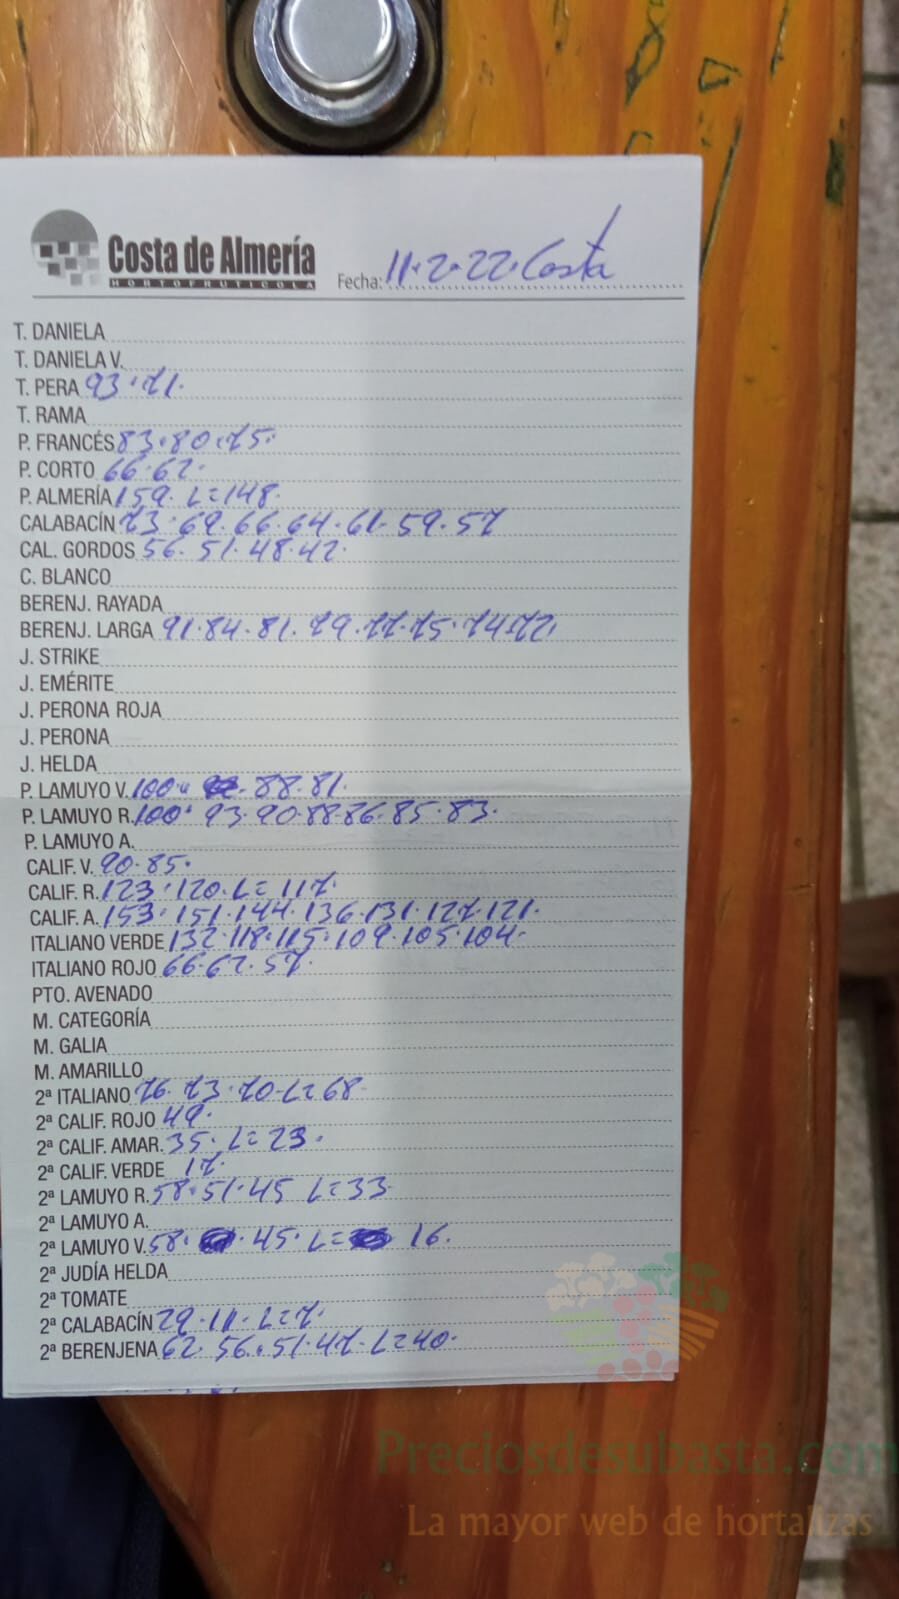 Costa de Almería
HORTOFRUTICOLA
Fecha: 11·2·22·Costa
T. DANIELA
T. DANIELA V.
T. PERA 93·71·
T. RAMA
P. FRANCÉS 83·80·75·
P. CORTO 66·62·
P. ALMERÍA 159· L=148·
CALABACÍN 73·69·66·64·61·59·57
CAL. GORDOS 56·51·48·42·
C. BLANCO
BERENJ. RAYADA
BERENJ. LARGA 91·84·81·79·77·75·74·72
J. STRIKE
J. EMÉRITE
J. PERONA ROJA
J. PERONA
J. HELDA
P. LAMUYO V. 100· 88·81·
P. LAMUYO R. 100· 93·90·88·86·85·83·
P. LAMUYO A.
CALIF. V. 90·85·
CALIF. R. 123·120·L=117·
CALIF. A. 153·151·144·136·131·127·121·
ITALIANO VERDE 132·118·115·109·105·104·
ITALIANO ROJO 66·62·57·
PTO. AVENADO
M. CATEGORÍA
M. GALIA
M. AMARILLO
2ª ITALIANO 76·73·70·L=68·
2ª CALIF. ROJO 49·
2ª CALIF. AMAR. 35·L=23·
2ª CALIF. VERDE 17·
2ª LAMUYO R. 58·51·45 L=33
2ª LAMUYO A.
2ª LAMUYO V. 58· 45·L= 16·
2ª JUDÍA HELDA
2ª TOMATE
2ª CALABACÍN 29·11·L=7·
2ª BERENJENA 62·56·51·47·L=40·
Preciosdesubasta.com
La mayor web de hortalizas